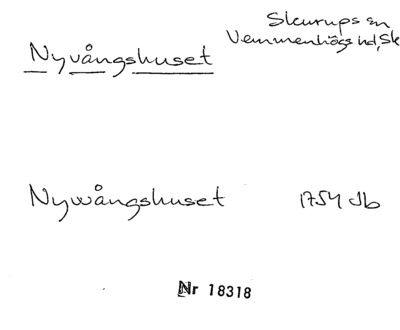 Skurups sn
Vemmenhögs hd, Sk
Nyvångshuset
Nywångshuset 1754 Jb
Nr 18318